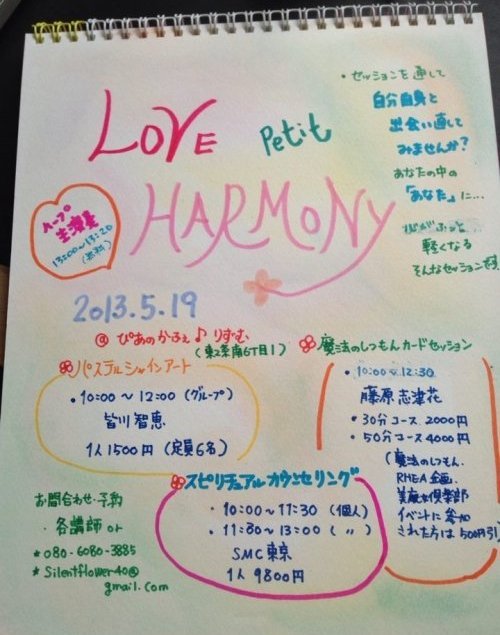 LOVE
Petit
HARMONY
・セッションを通して
自分自身と
出会い直して
みませんか?
あなたの中の
「あなた」に…
心がふっと
軽くなる
そんなセッションです
ハープ
生演奏
13:00〜13:20
(無料)
2013.5.19
@ぴあのかふぇ♪りずむ
(東2条南6丁目1)
パステルシャインアート
・10:00〜12:00(グループ)
皆川智恵
1人1500円(定員6名)
魔法のしつもんカードセッション
・10:00〜12:30
藤原志津花
・30分コース 2000円
・50分コース 4000円
(魔法のしつもん、
RHEA企画、
美魔女倶楽部
イベントに参加
された方は500円引)
スピリチュアルカウンセリング
・10:00〜11:30(個人)
・11:30〜13:00(〃)
SMC東京
1人9800円
お問合わせ・予約
各講師or
*080-6080-3885
*Silentflower40@
gmail.com